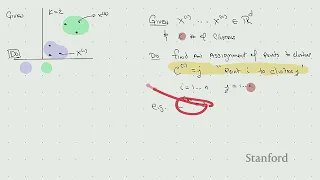 Given: K=2
x⁽ⁱ⁾
Do
x⁽ⁱ⁾
Given x⁽¹⁾ ... x⁽ⁿ⁾ ∈ ℝᵈ
# of Clusters
Do find an Assignment of points to cluster
C⁽ⁱ⁾ = j "Point i to cluster j"
i = 1 ... n j = 1 ...
e.g.
Stanford